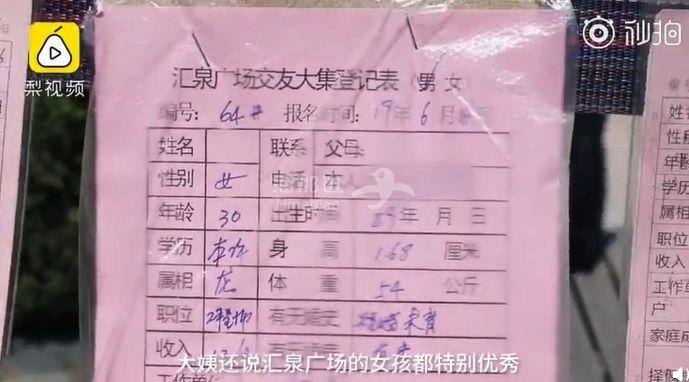 梨视频
秒拍
汇泉广场交友大集登记表（男 女）
编号：64# 报名时间：19年6月
姓名 联系 父母：
性别 女 电话 本人
年龄 30 出生时间 89年 月 日
学历 本科 身 高 1.68 厘米
属相 龙 体 重 54 公斤
职位 工程师 有无婚史 短婚未育
收入
大姨还说汇泉广场的女孩都特别优秀
姓
性
年龄
学历
属相
职位
收入
工作单
户
家庭成
择偶